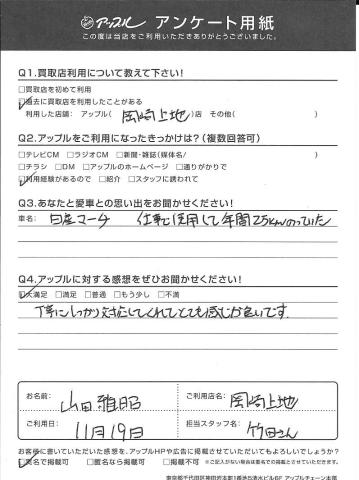 アップル アンケート用紙
この度は当店をご利用いただきありがとうございました。
Q1.買取店利用について教えて下さい!
□買取店を初めて利用
□過去に買取店を利用したことがある
利用した店舗: アップル( 岡崎上地 )店 その他( )
Q2.アップルをご利用になったきっかけは?(複数回答可)
□テレビCM □ラジオCM □新聞・雑誌(媒体名/ )
□チラシ □DM □アップルのホームページ □通りがかりで
□利用経験があるので □紹介 □スタッフに誘われて
Q3.あなたと愛車との思い出をお聞かせください!
車名: 日産マーチ 仕事で使用して年間2.5万kmのっていた
Q4.アップルに対する感想をぜひお聞かせください!
□大満足 □満足 □普通 □もう少し □不満
丁寧にしっかり対応してくれてとても感じが良いです。
お名前: 山田雅昭
ご利用店名: 岡崎上地
ご利用日: 11月19日
担当スタッフ名: 竹田さん
お客様に書いていただいた感想を、アップルHPや広告に掲載させていただいてもよろしいでしょうか?
□実名で掲載可 □匿名なら掲載可 □掲載不可 ※ご記入がない場合は匿名での掲載とさせていただきます。
東京都千代田区神田府本町1番地5清水ビル6F アップルチェーン本部